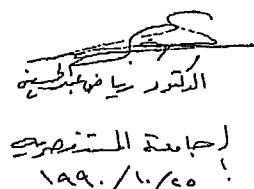 الدكتور رياض عبد الحسين
الجامعة المستنصرية
١٩٩٠/١٠/٢٥